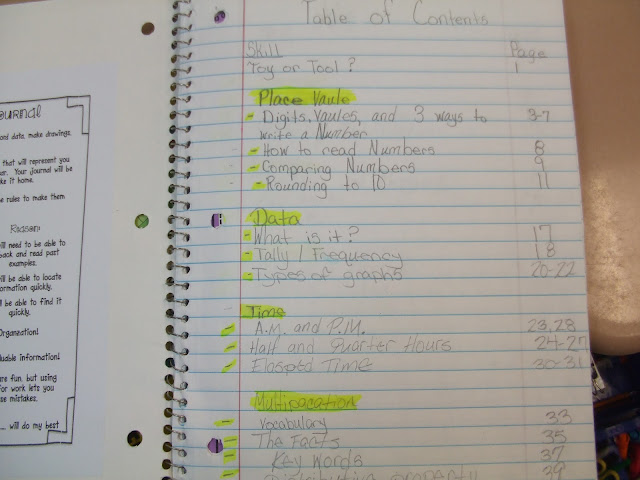 ournal
ood data, make drawings,
that will represent you
ar. Your journal will be
ke it home.
e rules to make them
Reason:
ill need to be able to
back and read past
examples.
ill be able to locate
ormation quickly.
l be able to find it
quickly.
Organization!
luable information!
are fun, but using
for work lets you
se mistakes.
will do my best
Table of Contents
Skill Page
Toy or Tool? 1
Place Vaule
- Digits, Vaules, and 3 ways to 3-7
write a Number
- How to read Numbers 8
- Comparing Numbers 9
- Rounding to 10 11
Data
- What is it? 17
- Tally / Frequency 18
- Types of graphs 20-22
Time
- A.M. and P.M. 23,28
- Half and Quarter Hours 24-27
- Elasptd Time 30-31
Multipacation
- Vocabulary 33
- The Facts 35
- Key Words 37
- Distributive property 39